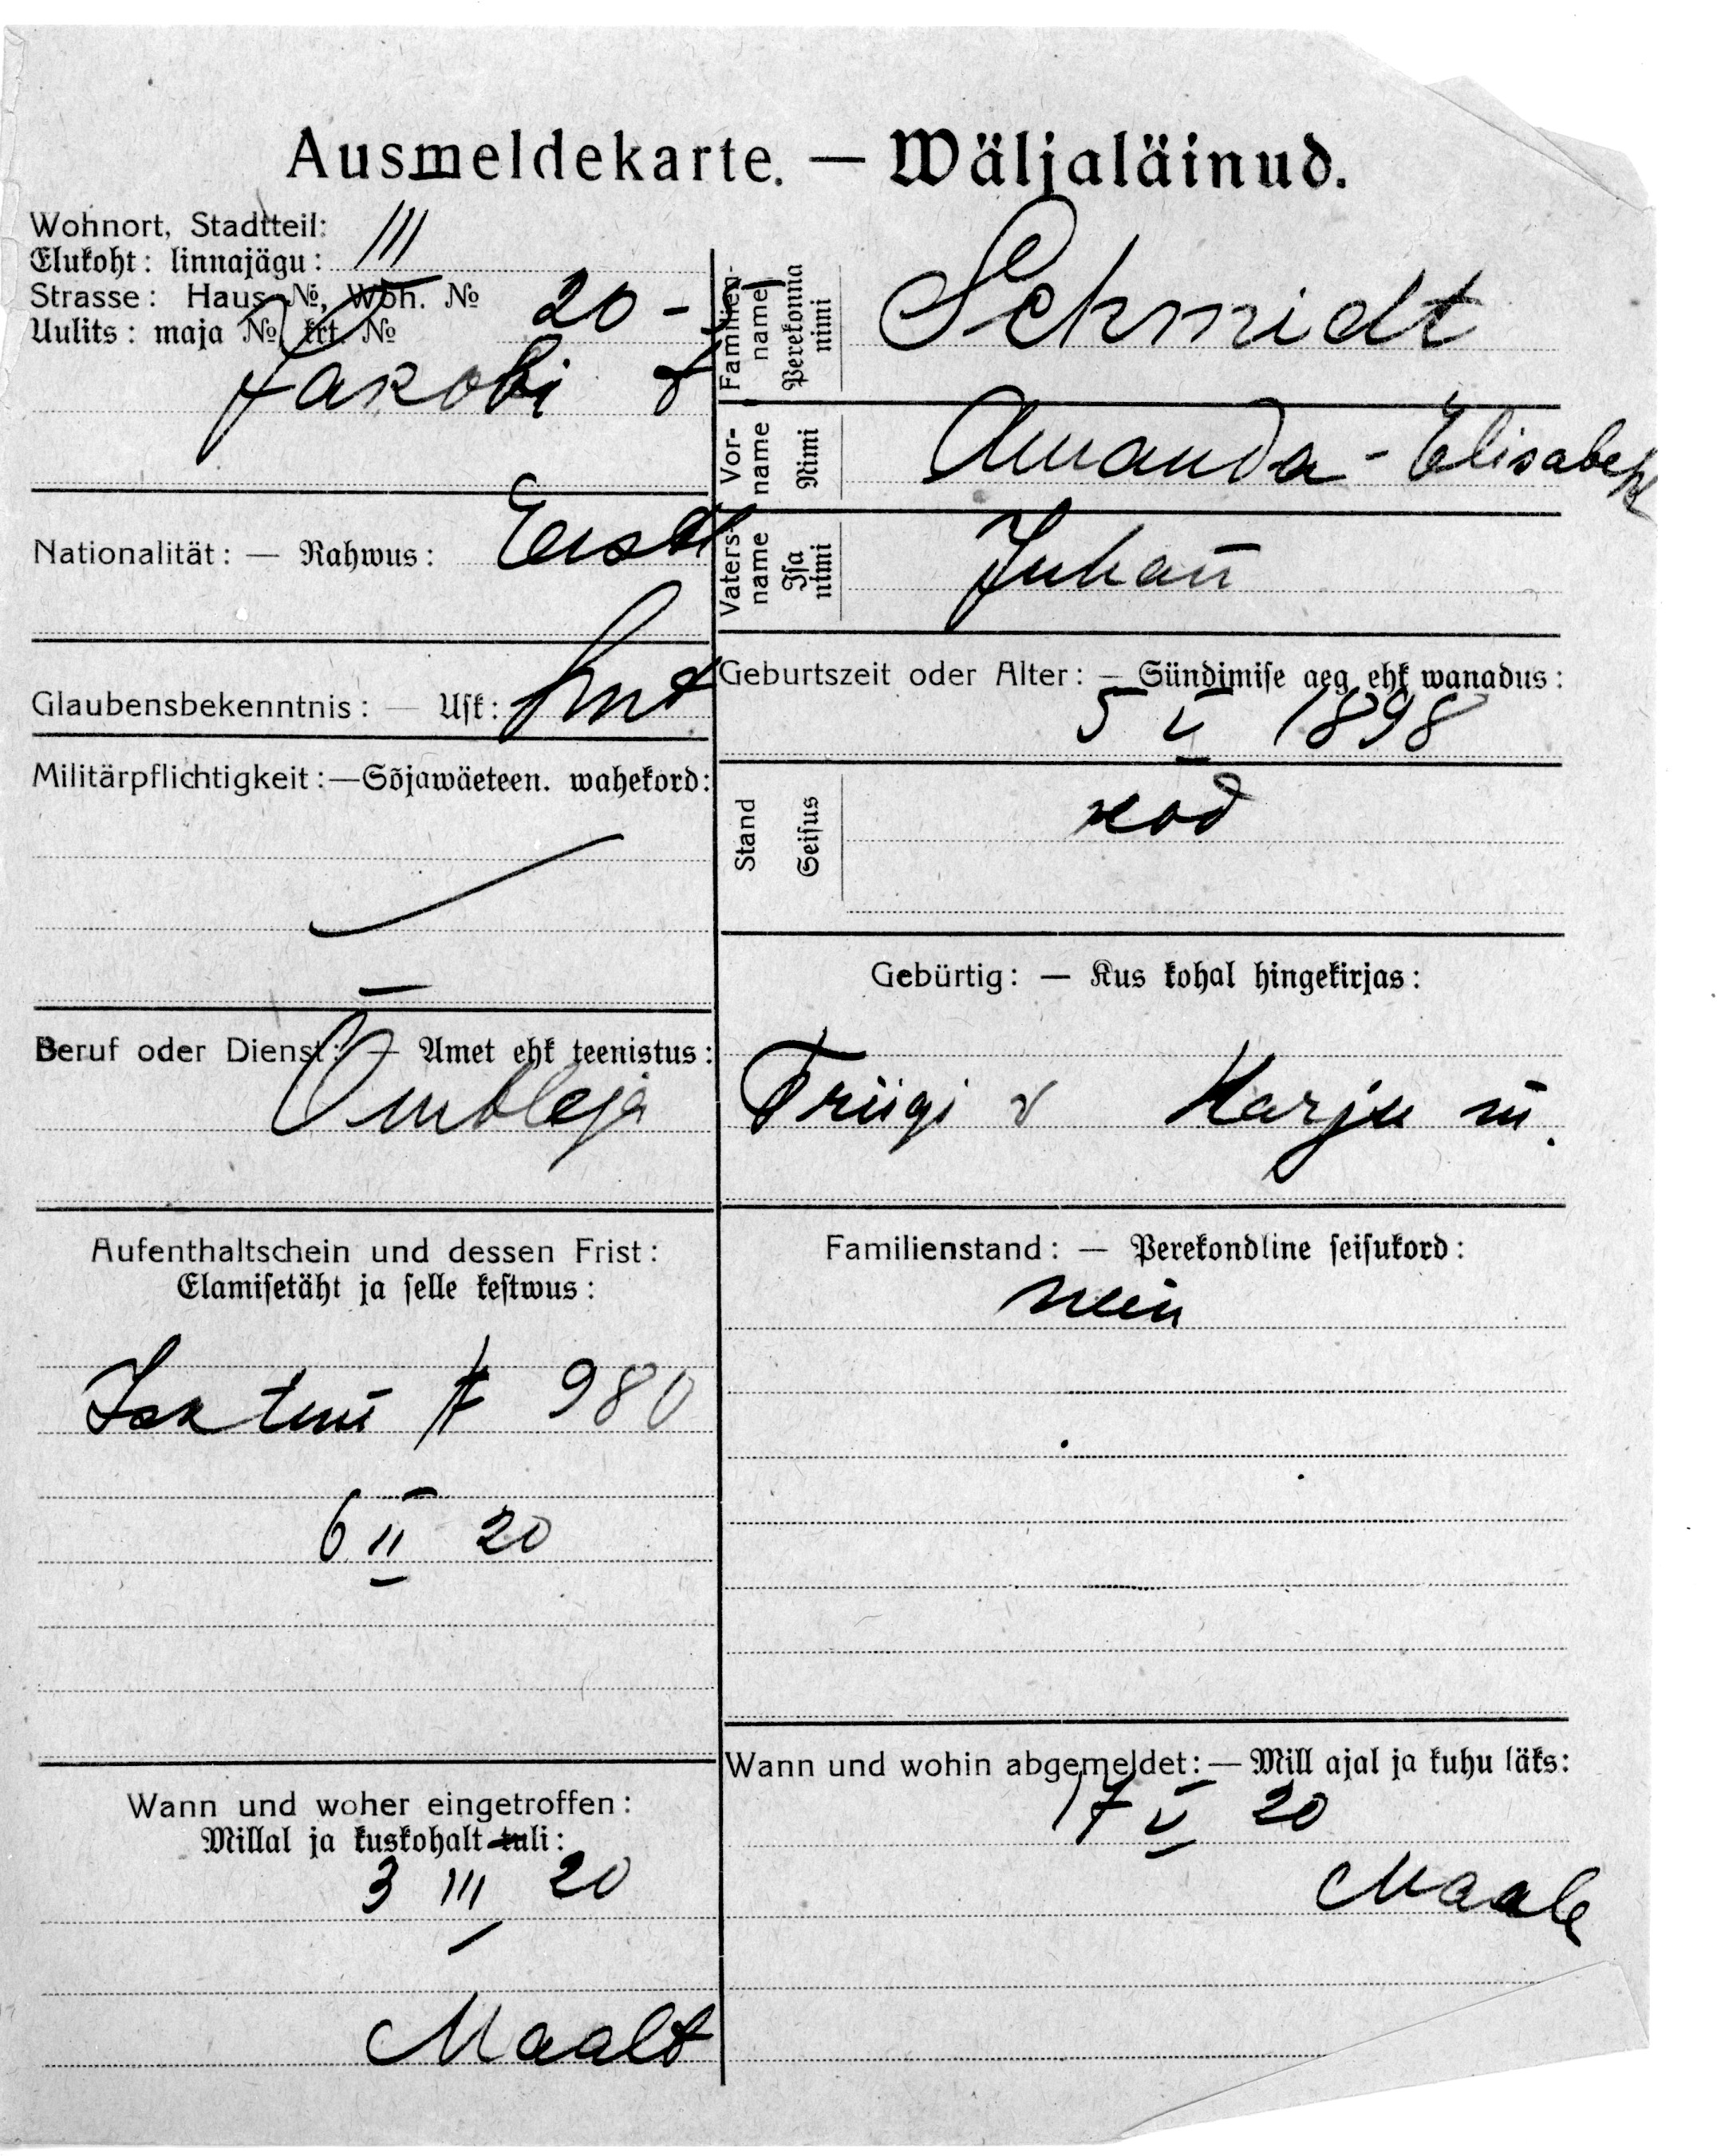 Ausmeldekarte. — Wäljaläinud.
Wohnort, Stadtteil:
Elukoht: linnajägu: III
Strasse: Haus №, Woh. № 20 -
Uulits: maja № krt. №
Jakobi t
Nationalität: — Rahwus: Eestl
Glaubensbekenntnis: — Usk: Lut
Militärpflichtigkeit: — Sõjawäeteen. wahekord:
Beruf oder Dienst: — Amet ehk teenistus:
Ombleja
Aufenthaltschein und dessen Frist:
Elamisetäht ja selle kestwus:
Isk tun № 980
6 II 20
Wann und woher eingetroffen:
Millal ja kuskohalt tuli:
3 III 20
Maalt
Familien-name Perekonna nimi Schmidt
Vor-name Nimi Amanda - Elisabeth
Vaters-name Isa nimi Juhan
Geburtszeit oder Alter: — Sündimise aeg ehk wanadus:
5 V 1898
Stand Seisus kod
Gebürtig: — Kus kohal hingekirjas:
Triigi v Harju m.
Familienstand: — Perekondline seisukord:
nein
Wann und wohin abgemeldet: — Mill ajal ja kuhu läks:
17 V 20
Maale